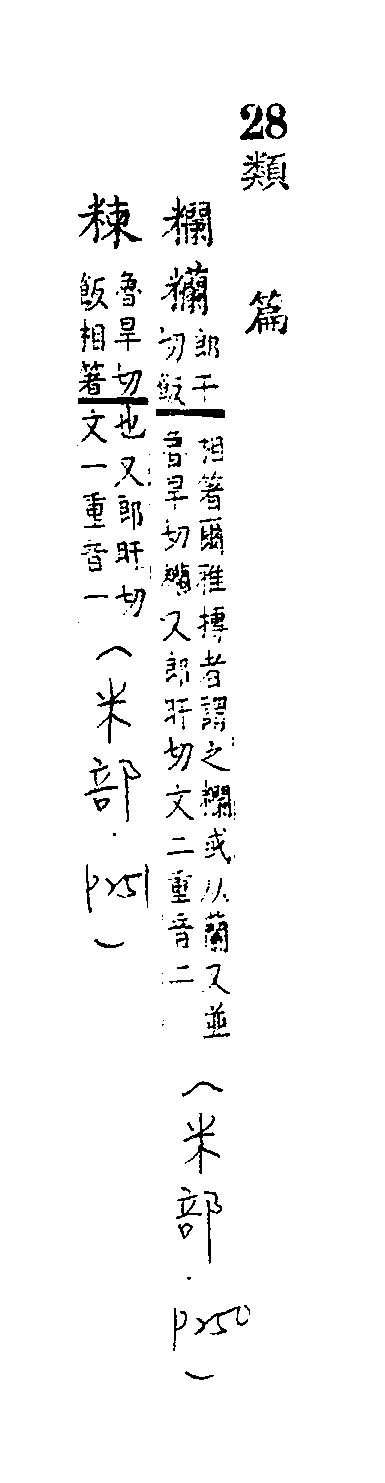 28類 篇
糷郎干
切飯
相著爾雅摶者謂之或从蘭又並
魯旱切糷又郎旰切文二重音二
（米部．p250）
魯旱切也又郎旰切
飯相著文一重音一
（米部．p251）